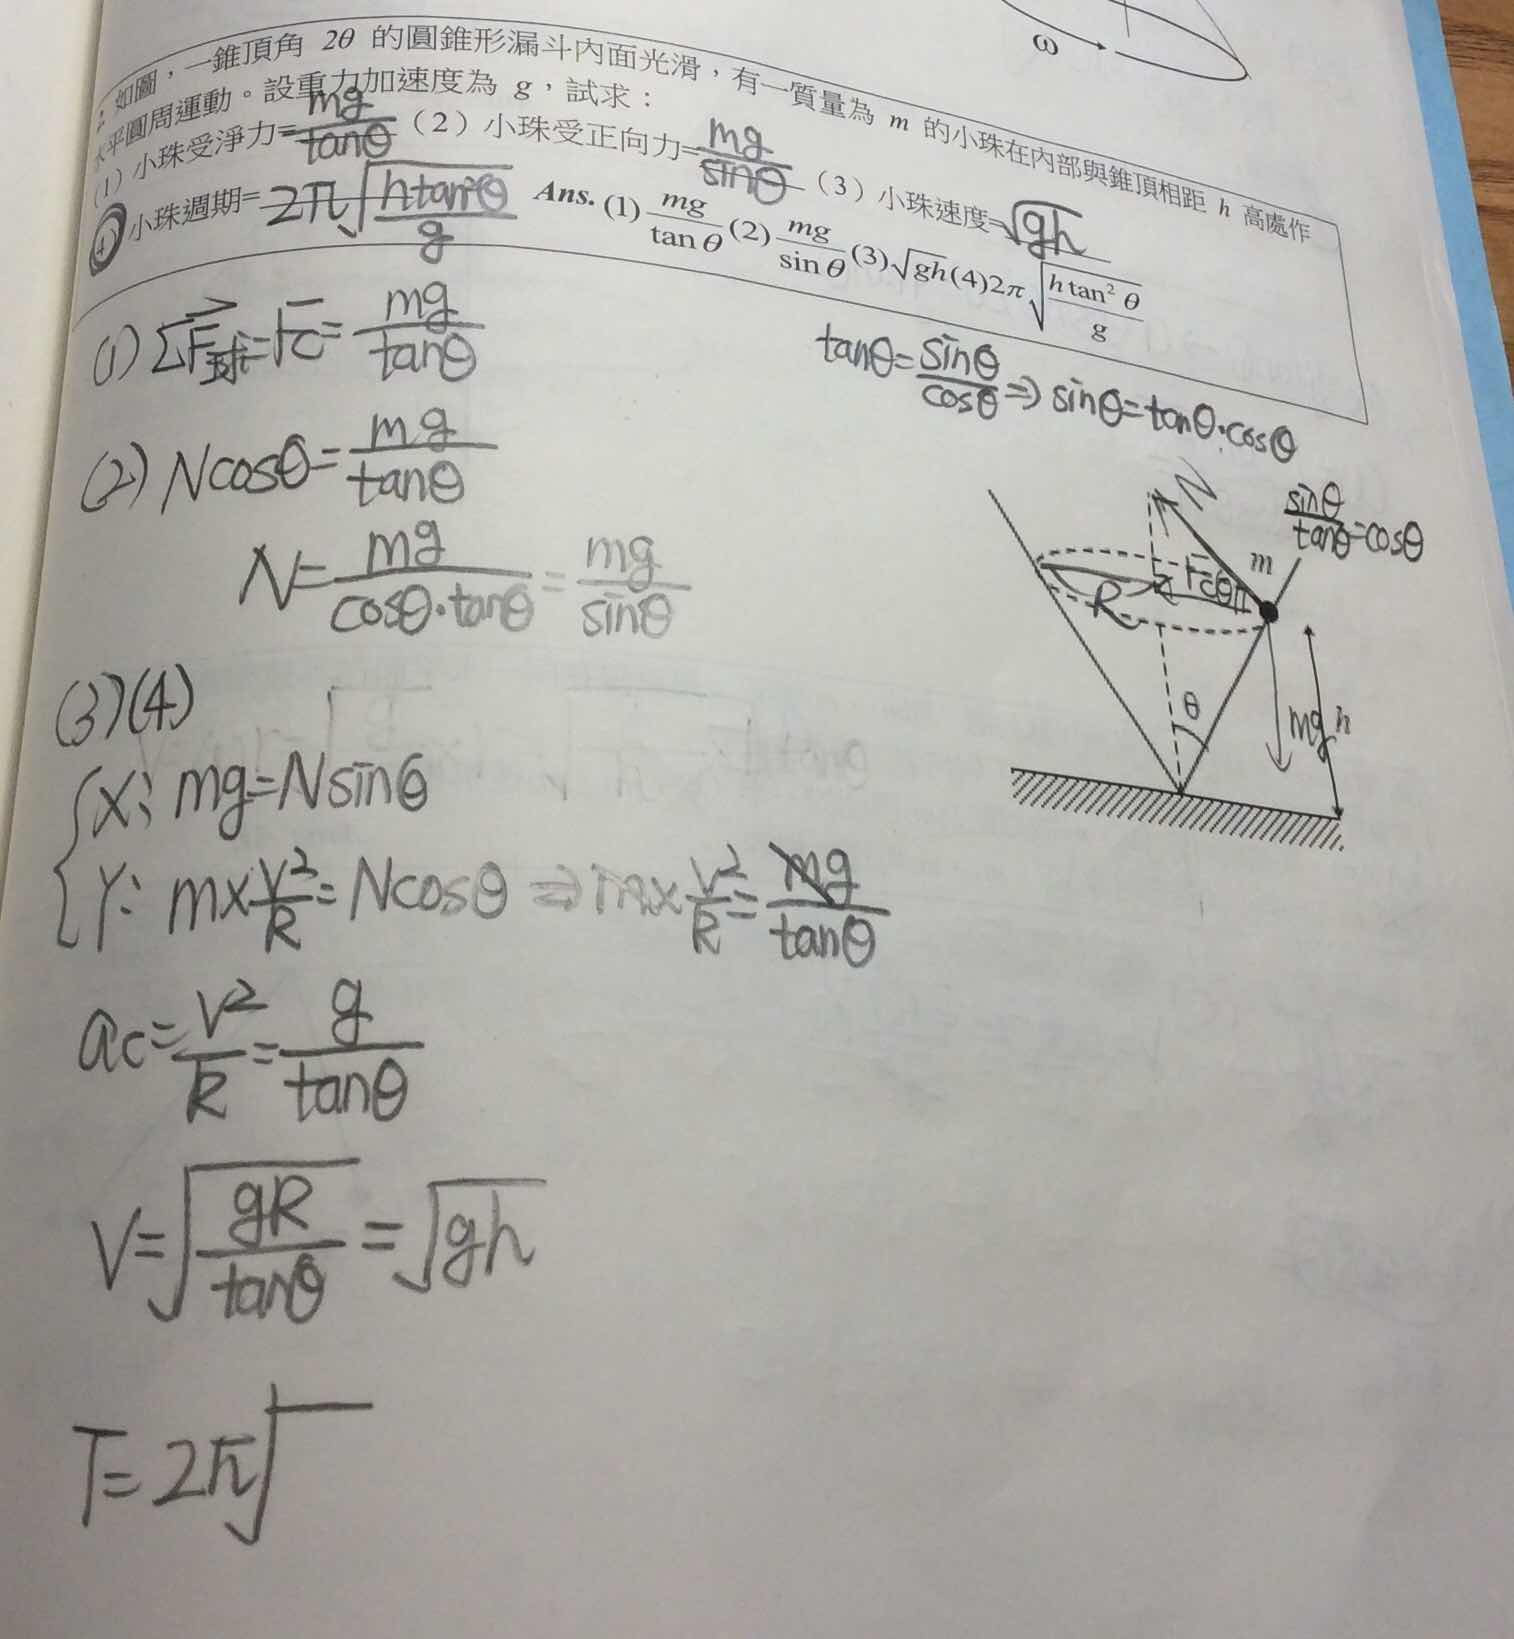 ω
如圖，一錐頂角 2θ 的圓錐形漏斗內面光滑，有一質量為 m 的小珠在內部與錐頂相距 h 高處作
水平圓周運動。設重力加速度為 g，試求：
(1) 小珠受淨力= mg/tanθ (2) 小珠受正向力= mg/sinθ (3) 小珠速度= √gh
(4) 小珠週期= 2π√(htan²θ/g) Ans. (1) mg/tan θ (2) mg/sin θ (3) √gh (4) 2π√(h tan² θ/g)
(1) ΣF球=Fc= mg/tanθ
tanθ= sinθ/cosθ ⇒ sinθ=tanθ·cosθ
(2) Ncosθ= mg/tanθ
sinθ/tanθ=cosθ
N= mg/(cosθ·tanθ) = mg/sinθ
N
m
R
Fc
θ
θ
mg
h
(3)(4)
X: mg=Nsinθ
Y: m×v²/R= Ncosθ ⇒ m×v²/R= mg/tanθ
ac= v²/R = g/tanθ
V=√(gR/tanθ) = √gh
T= 2π√